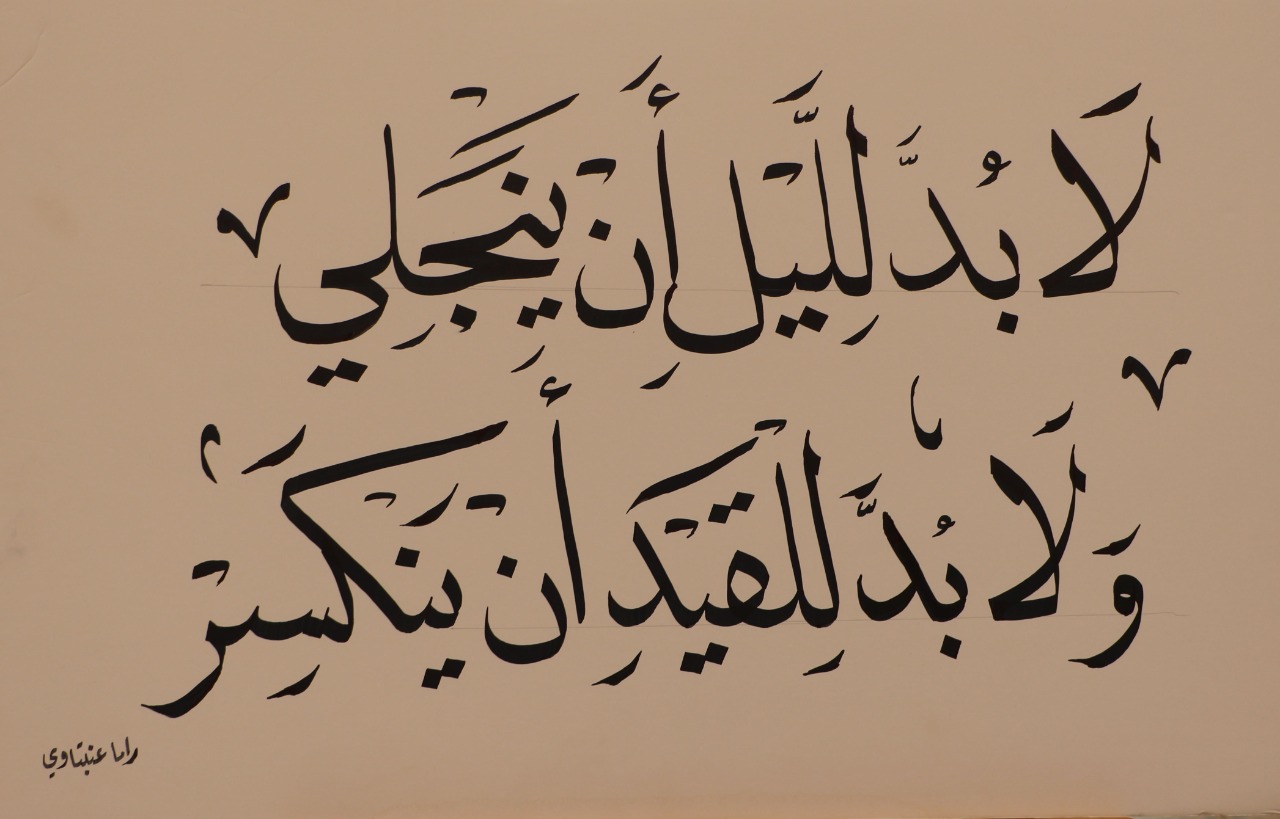 لَا بُدَّ لِلَّيْلِ أَنْ يَنْجَلِي
وَلَا بُدَّ لِلْقَيْدِ أَنْ يَنْكَسِرْ
راما عنبتاوي